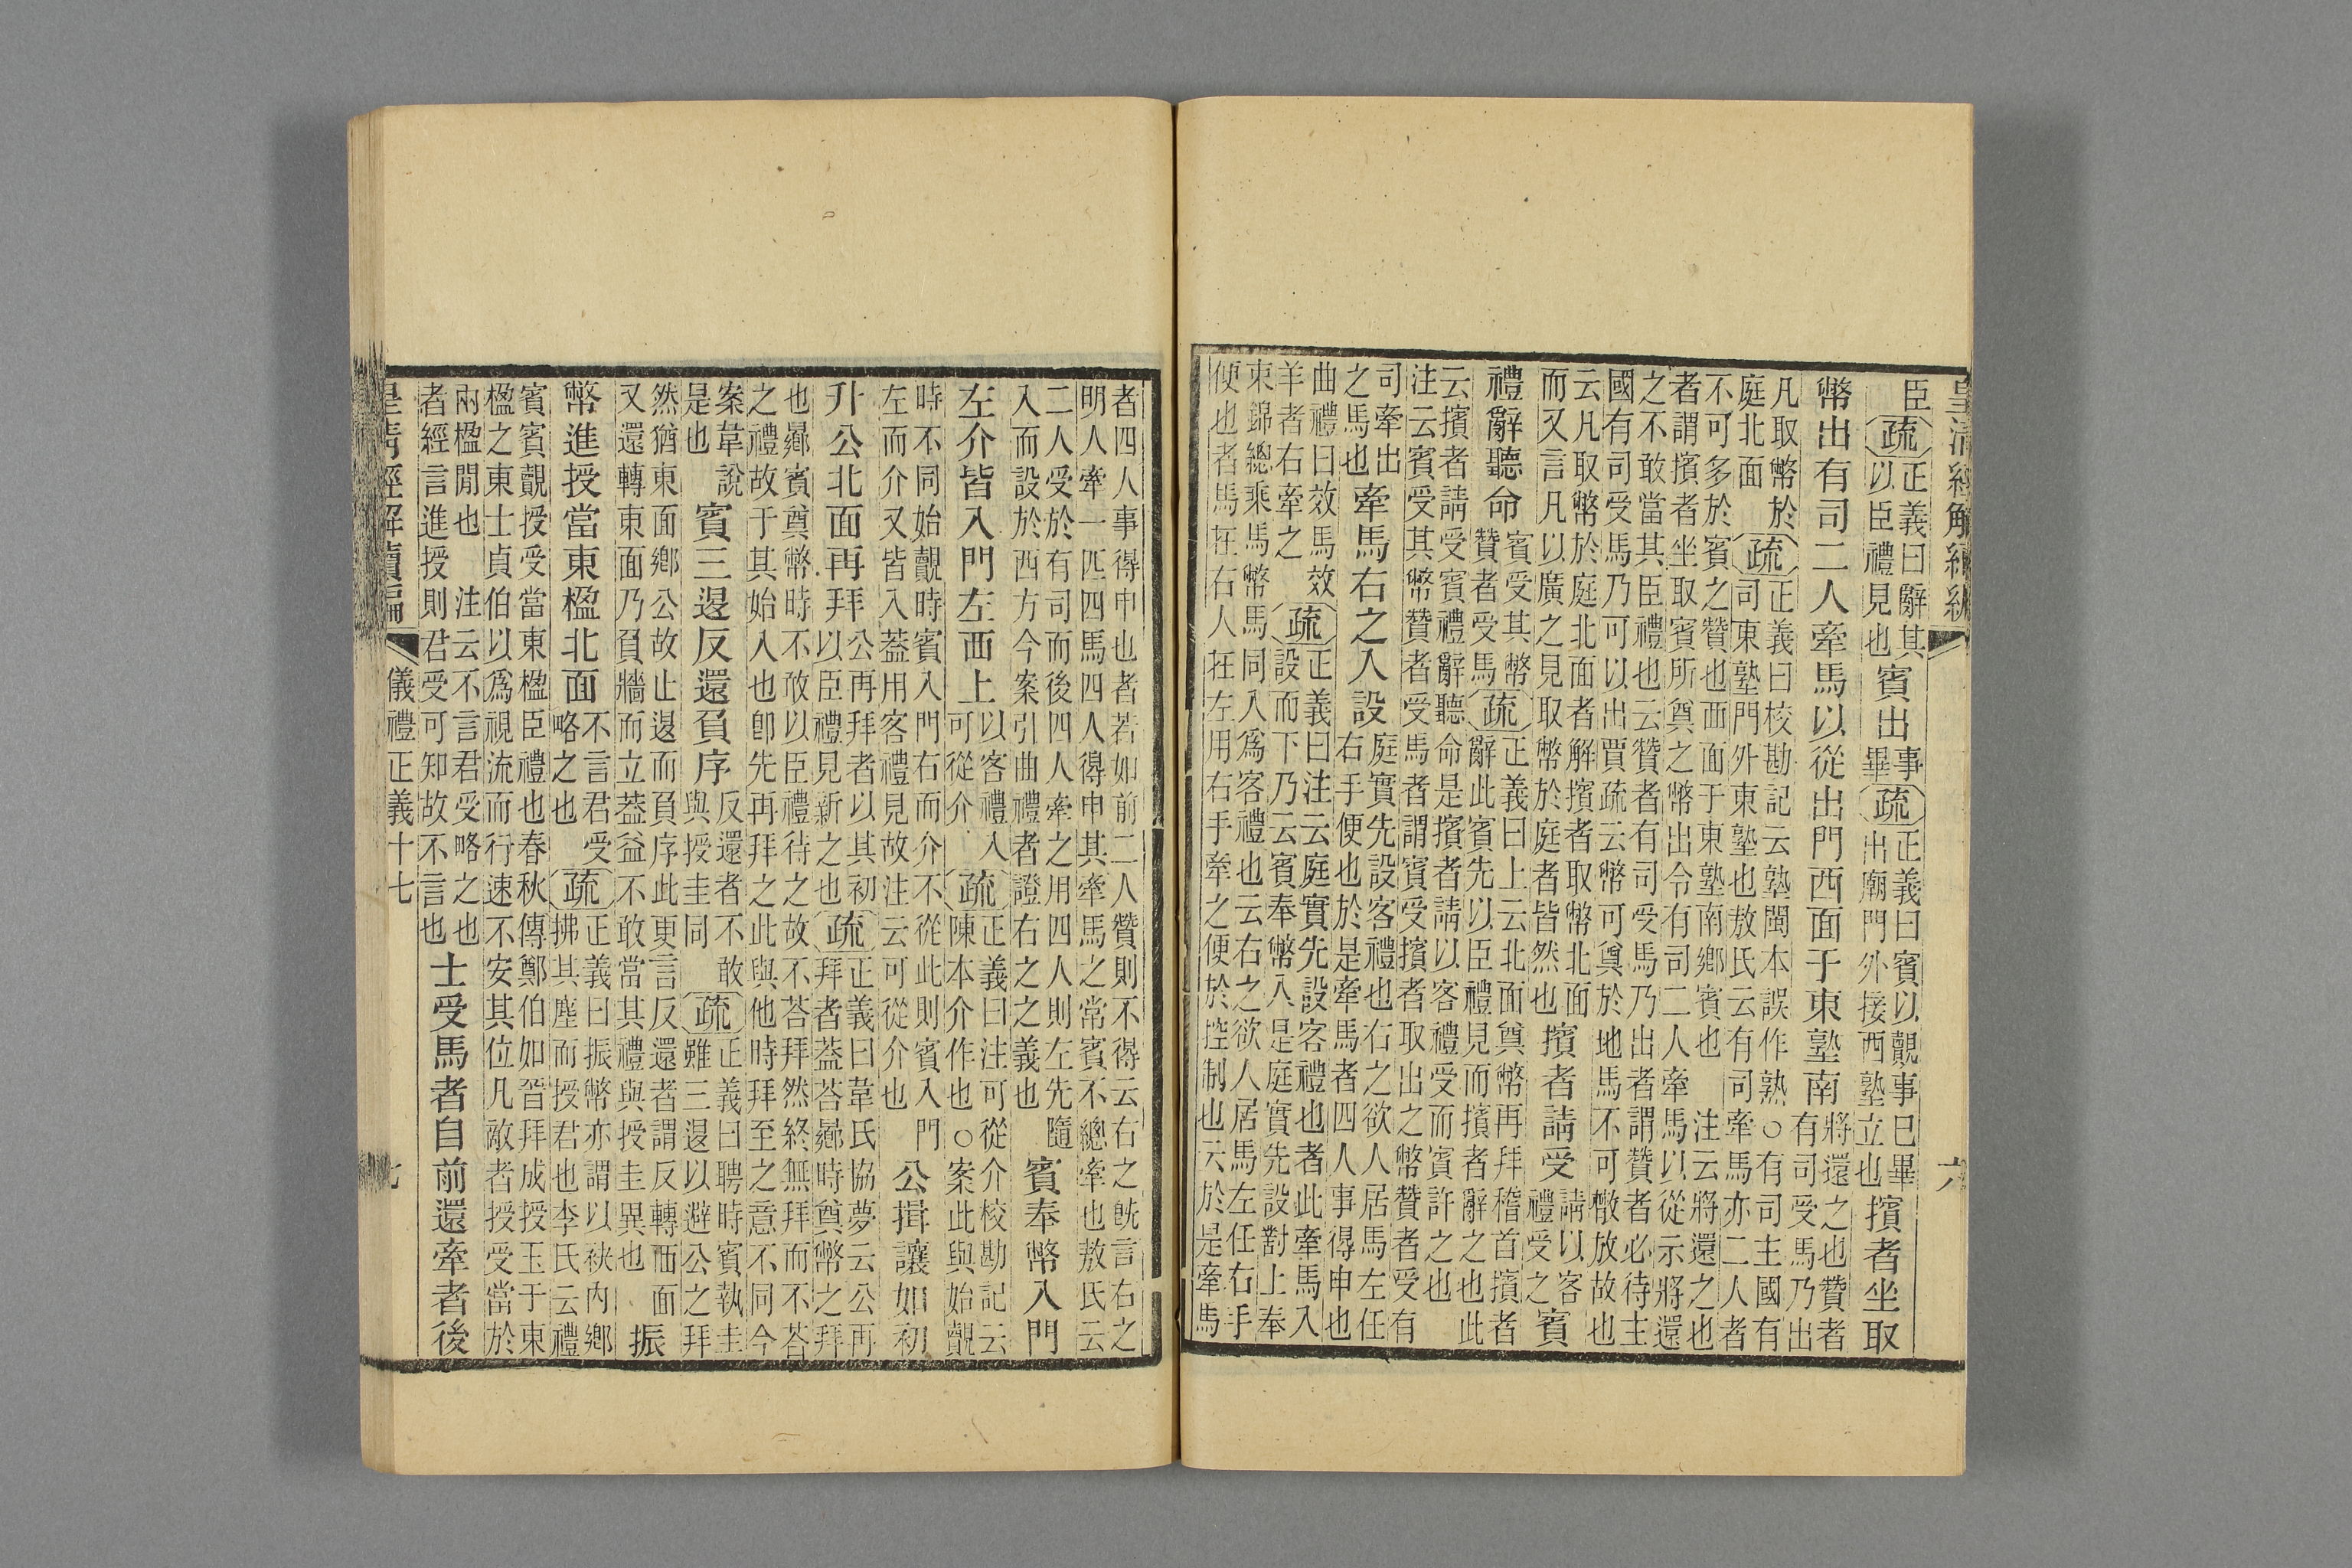 皇清經解續編
六
臣
疏
正義曰辭其
以臣禮見也
賓出
事
畢
疏
正義曰賓以覿事巳畢
出廟門外接西塾立也
擯者坐取
幣出有司二人牽馬以從出門西面于東塾南
將還之也贊者
有司受馬乃出
凡取幣於
庭北面
疏
正義曰校勘記云塾閩本誤作熟○有司主國有
司東塾門外東塾也敖氏云有司牽馬亦二人者
不可多於賓之贊也西面于東塾南鄉賓也 注云將還之也
者謂擯者坐取賓所奠之幣出令有司二人牽馬以從示將還
之不敢當其臣禮也云贊者有司受馬乃出者謂贊者必待主
國有司受馬乃可以出賈疏云幣可奠於地馬不可散放故也
云凡取幣於庭北面者解擯者取幣北面
而又言凡以廣之見取幣於庭者皆然也
擯者請受
請以客
禮受之
賓
禮辭聽命
賓受其幣
贊者受馬
疏
正義曰上云北面奠幣再拜稽首擯者
辭此賓先以臣禮見而擯者辭之也此
云擯者請受賓禮辭聽命是擯者請以客禮受而賓許之也
注云賓受其幣贊者受馬者謂賓受擯者取出之幣贊者受有
司牽出
之馬也
牽馬右之入設
庭實先設客禮也右之欲人居馬左任
右手便也於是牽馬者四人事得申也
曲禮曰效馬效
羊者右牽之
疏
正義曰注云庭實先設客禮也者此牽馬入
設而下乃云賓奉幣入是庭實先設對上奉
束錦總乘馬幣馬同入爲客禮也云右之欲人居馬左任右手
便也者馬在右人在左用右手牽之便於控制也云於是牽馬
者四人事得申也者若如前二人贊則不得云右之旣言右之
明人牽一匹四馬四人得申其牽馬之常賓不總牽也敖氏云
二人受於有司而後四人牽之用四人則左先隨
入而設於西方今案引曲禮者證右之之義也
賓奉幣入門
左介皆入門左西上
以客禮入
可從介
疏
正義曰注可從介校勘記云
陳本介作也○案此與始覿
時不同始覿時賓入門右而介不從此則賓入門
左而介又皆入蓋用客禮見故注云可從介也
公揖讓如初
升公北面再拜
公再拜者以其初
以臣禮見新之也
疏
正義曰韋氏協夢云公再
拜者蓋荅曏時奠幣之拜
也曏賓奠幣時不敢以臣禮待之故不荅拜然終無拜而不荅
之禮故于其始入也卽先再拜之此與他時拜至之意不同今
案韋說
是也
賓三退反還負序
反還者不敢
與授圭同
疏
正義曰聘時賓執圭
雖三退以避公之拜
然猶東面鄉公故止退而負序此更言反還者謂反轉西面
又還轉東面乃負牆而立蓋益不敢當其禮與授圭異也
振
幣進授當東楹北面
不言君受
略之也
疏
正義曰振幣亦謂以袂內鄉
拂其塵而授君也李氏云禮
賓賓覿授受當東楹臣禮也春秋傳鄭伯如晉拜成授玉于東
楹之東士貞伯以爲視流而行速不安其位凡敵者授受當於
兩楹閒也 注云不言君受略之也
者經言進授則君受可知故不言也
士受馬者自前還牽者後
皇清經解續編
儀禮正義十七
七